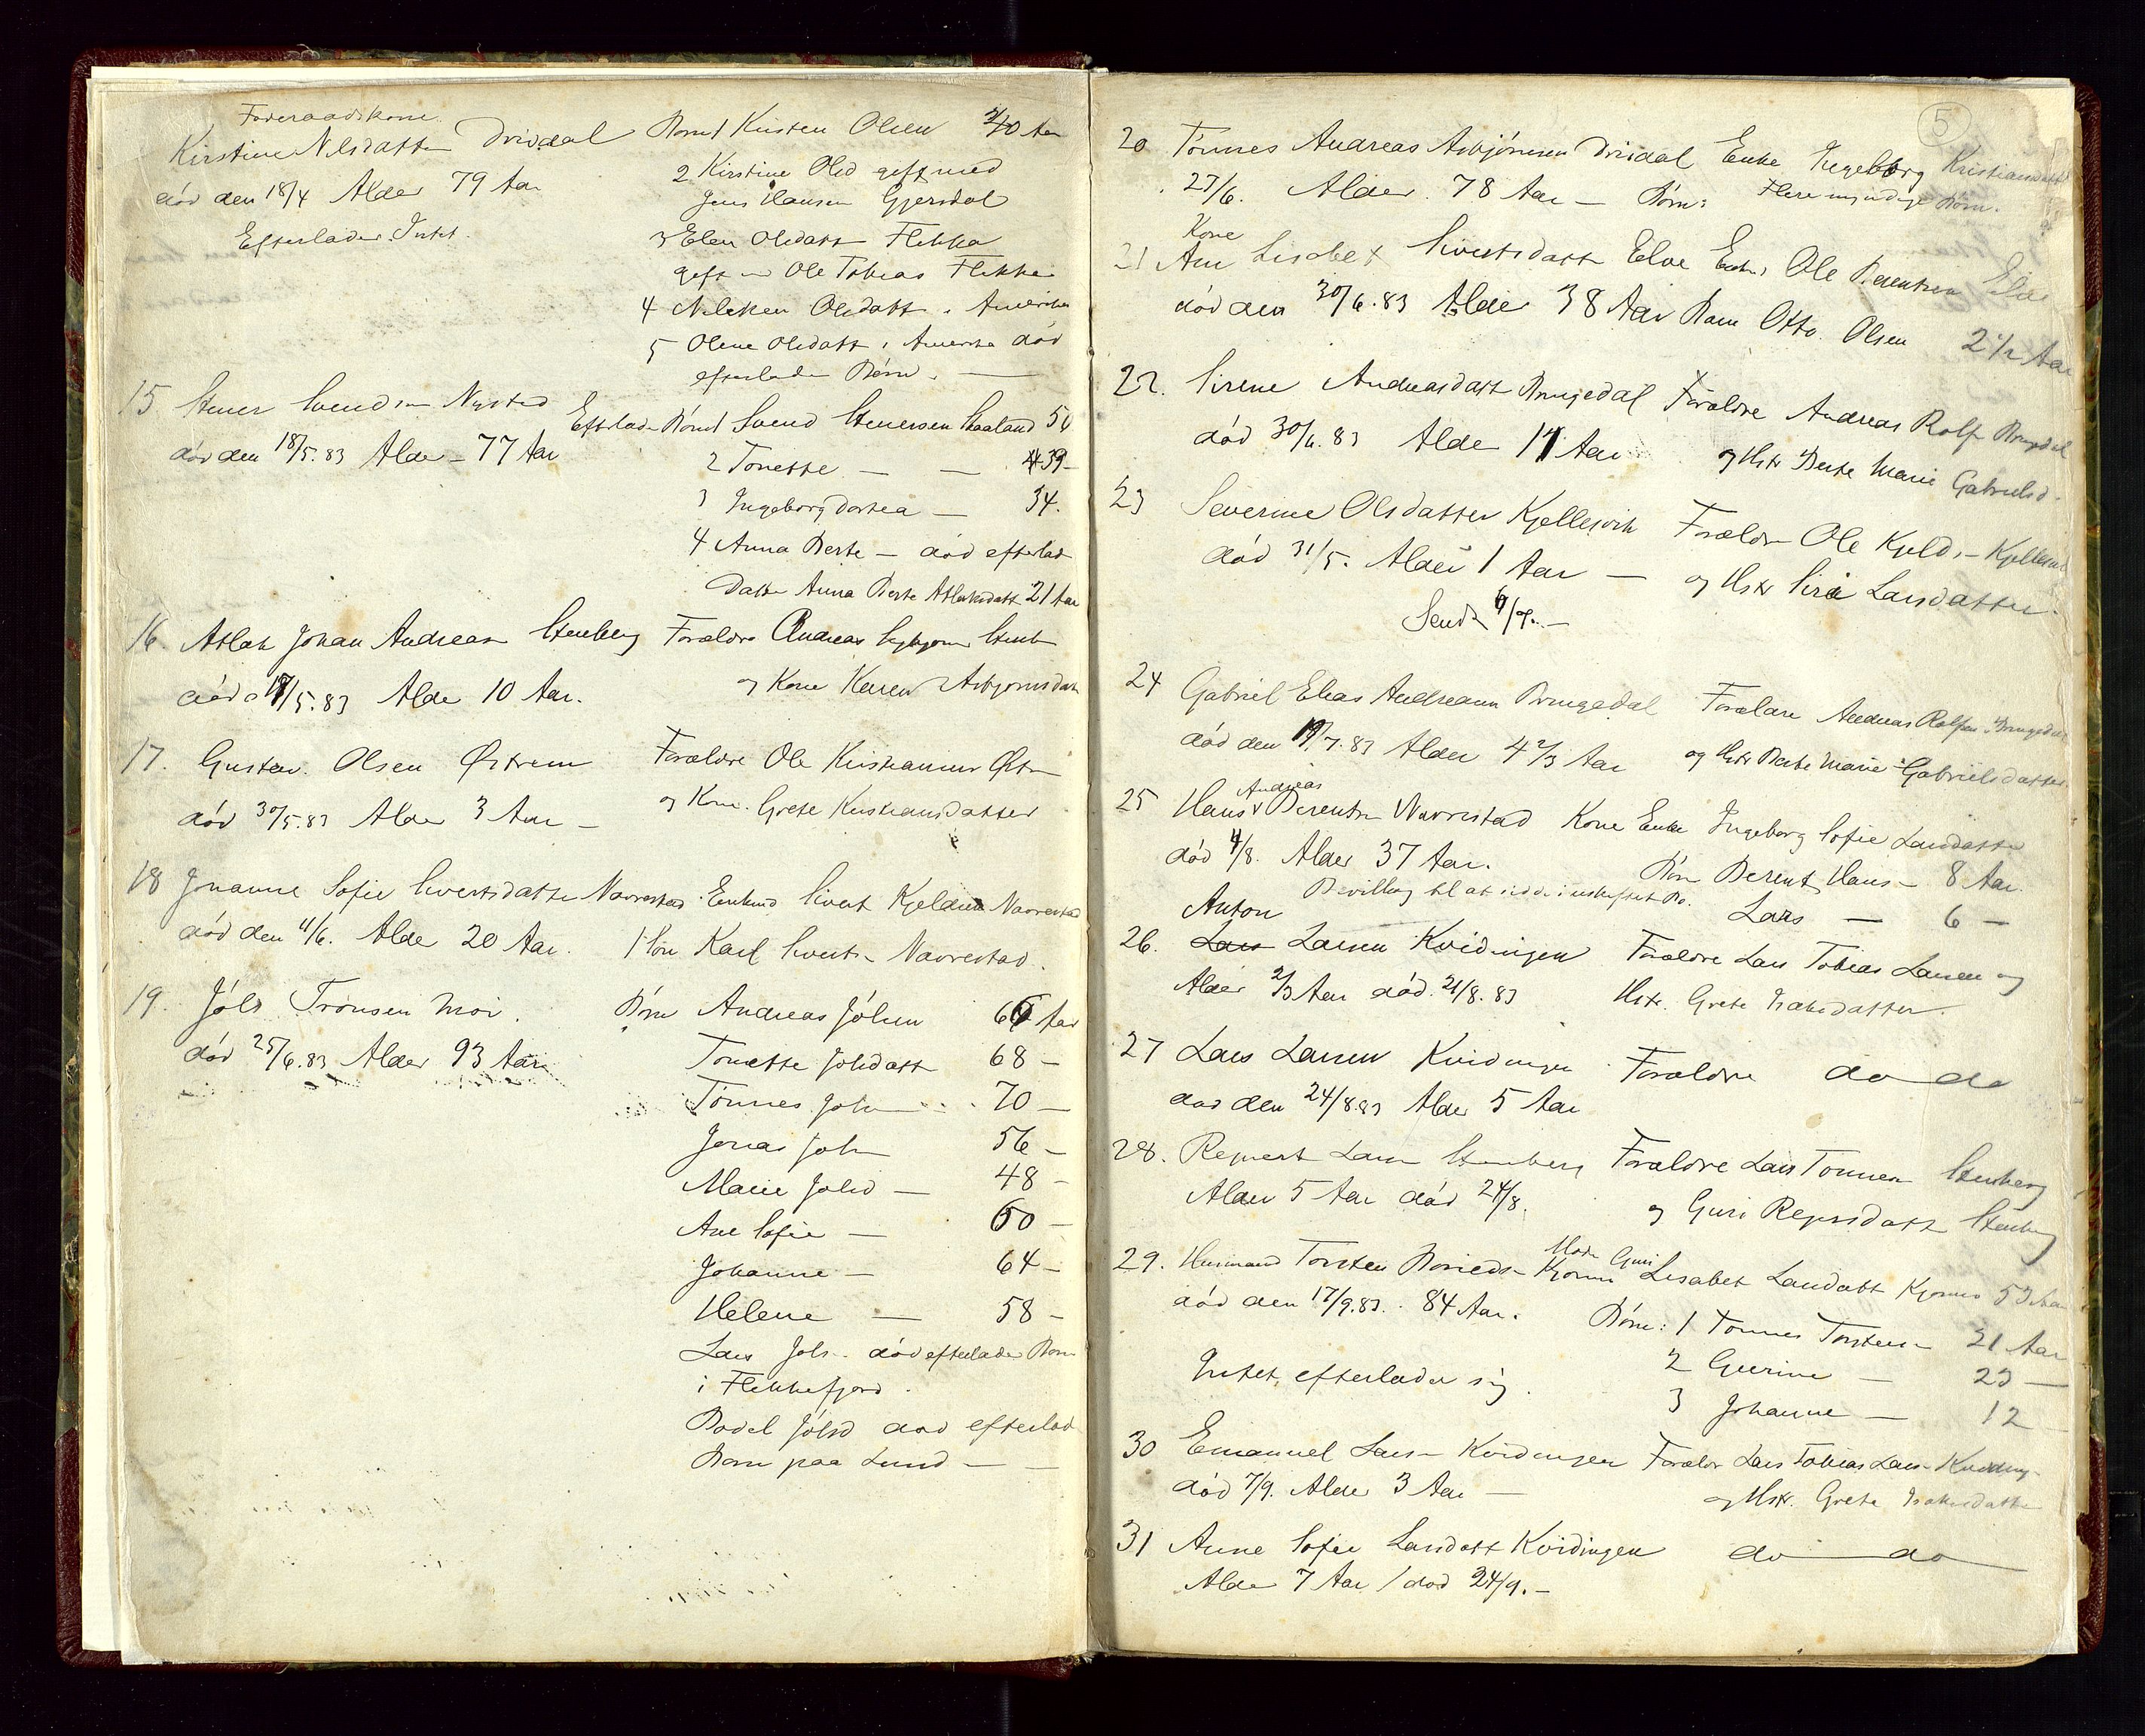 Føderaadskone
Kirstine Nilsdatter Drivdal Børn 1 Kristen Olsen 40 Aar
død den 18/4 Alder 79 Aar
2 Kirstine Olsd gift med
Jens Hansen Gjersdal
Efterlader Intet.
3 Elen Olsdatt Flikka
gift m Ole Tobias Flikka
4 Nilsken Olsdatt i Amerika
5 Olene Olsdatt i Amerika død
efterlader Børn. —
15 Stener Svendsen Nysted Efterlad Børn 1 Svend Stenersen Haaland 50
død den 18/5.83 Alder 77 Aar
2 Tonette — — 39 —
3 Ingeborg Dortea — 34.
4 Anna Berte — død efterlad
Datter Anna Berte Atlaksdatt 21 Aar
16. Atlak Johan Andreasen Stenberg Forældre Andreas Stenb
død 17/5.83 Alder 10 Aar.
og Kone Karen Asbjornsdatt
17. Gustav. Olsen Østrem Forældre Ole Kristiansen Østr
død 30/5.83 Alder 3 Aar —
og Kone. Grete Kristiansdatter
18 Johanne Sofie Sivertsdatter Navrestad Enkmd Sivert Kjeldsen Navrestad
død den 4/6. Alder 20 Aar. 1 Søn Karl Sivertsen Navrestad.
19. Jóls Trónsen Moi. Børn Andreas Jólsen 66 Aar
død 25/6.83 Alder 93 Aar
Tonette Jolsdatt 68 —
Tónnes Jols 70 —
Jonas Jols 56 —
Marie Jolsd — 48 —
Ane Sofie — 60 —
Johanne — 64 —
Helene — 58 —
Lars Jols. død efterlader Børn
i Flekkefjord.
Bodel Jólsd død efterlad
Børn paa Lund — —
5
20 Tónnes Andreas Asbjórnsen Drivdal Enke Ingeborg Kristiansdatt
27/6. Alder. 78 Aar — Børn: Flere myndige Børn.
Kone
21 Ane Lisabet Sivertsdatt Eloe Enkm Ole Berentsen Eloe
død den 30/6.83 Alder 38 Aar Barn Otto. Olsen 2 1/2 Aar
22. Sirene Andreasdatt Bringedal Forældre Andreas Rolfs Bringedal
død 30/6.83 Alder 14 Aar og Hstr Berte Marie Gabrielsd.
23 Severine Olsdatter Kjellesvik Forældr Ole Kjelds — Kjellesvik
død 31/5. Alder 1 Aar — og Hstr Siri Larsdatter.
Sendt 6/9. —
24 Gabriel Elias Andreasen Bringedal Forældre Andreas Rolfsen Bringedal
død den 19/7.83 Alder 4 2/3 Aar og Hstr Berte Marie Gabrielsdatter
Andreas
25 Hans Berentsen Navrestad Kone Enke Ingeborg Sofie Larsdatter
død 4/8. Alder 37 Aar. Børn Berent Hans — 8 Aar.
Bevilling til at sidde i uskiftet Bo. Lars — 6 —
Anton
26. Lars Larsen Kvidingen Forældre Lars Tobias Larsen og
Alder 2/3 Aar død. 21/8.83 Hstr. Grete Isaksdatter.
27 Lars Larsen Kvidingen Forældre do do
død den 24/8.83 Alder 5 Aar
28. Reinert Larsen Stenberg Forældre Lars Tonnesen Stenberg
Alder 5 Aar død 24/8. og Guri Reinsdatt Stenberg
Moder Guri
29. Husmand Torsten Bóriedsen Kjorrnes Lisabet Larsdatt Kjornes 53 Aar
død den 17/9.83. 84 Aar. Børn: 1 Tonnes Torstens — 21 Aar
2 Gurine — 23 —
Intet efterlader sig.
3 Johanne — 12
30 Emanuel Lars — Kvidingen Forældr Lars Tobias Lars — Kviding.
død 7/9. Alder 3 Aar — og Hstr. Grete Isaksdatter
31 Anne Sofie Larsdatt Kvidingen do do
Alder 7 Aar / død 24/9. —